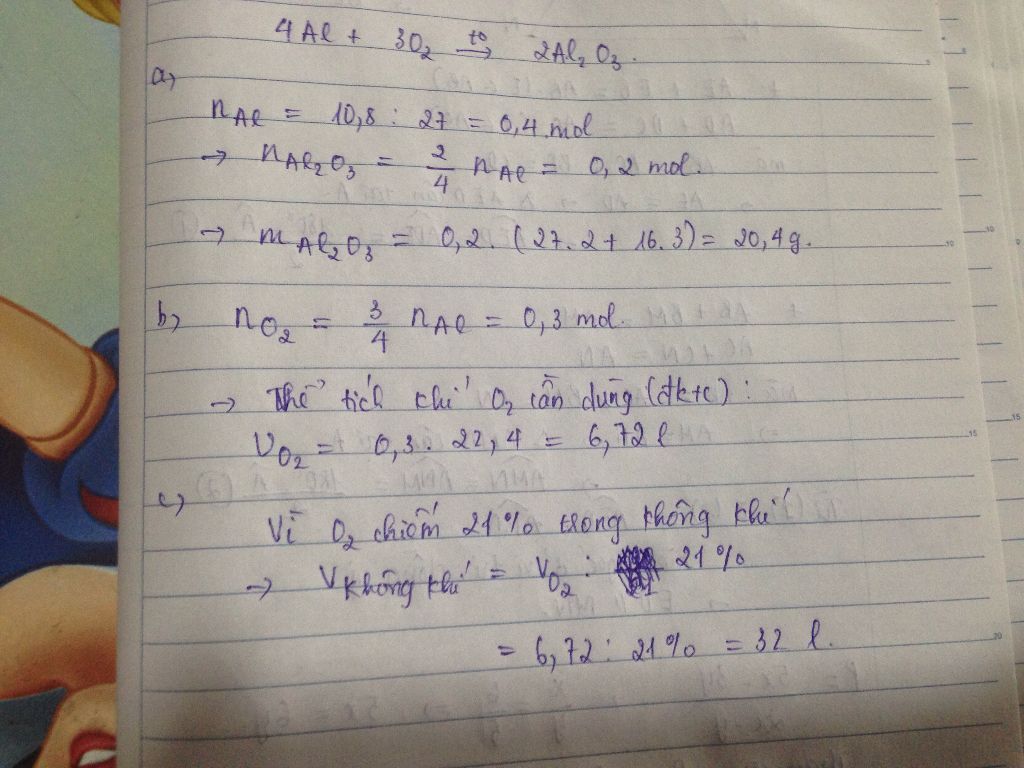 4Al + 3O₂ →(t°) 2Al₂O₃.
a,
nAl = 10,8 : 27 = 0,4 mol
→ nAl₂O₃ = 2/4 nAl = 0,2 mol.
→ mAl₂O₃ = 0,2. (27.2 + 16.3) = 20,4g.
b, nO₂ = 3/4 nAl = 0,3 mol.
→ Thể tích khí O₂ cần dùng (đktc) :
VO₂ = 0,3. 22,4 = 6,72 l
c,
Vì O₂ chiếm 21% trong không khí
→ Vkhông khí = VO₂ : 21%
= 6,72 : 21% = 32 l.